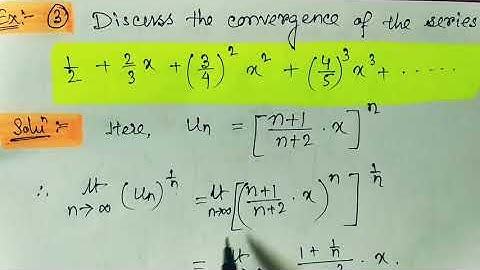 Ex:- ③ Discuss the convergence of the series
1/2 + 2/3 x + (3/4)² x² + (4/5)³ x³ + ......
Soluⁿ:- Here, Uₙ = [n+1/n+2 · x]ⁿ
∴ lt n→∞ (Uₙ)^1/n = lt n→∞ [(n+1/n+2 · x)ⁿ]^1/n
= lt 1 + 1/n · x.